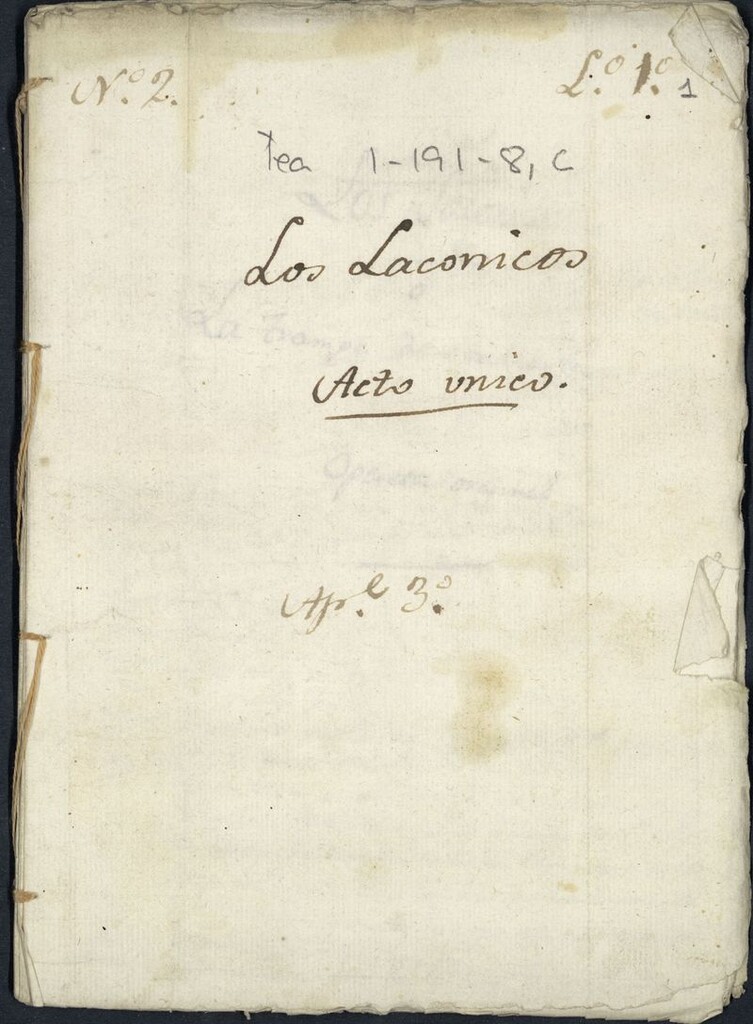 Nº 2.
L.º 1.º 1
Tea 1-191-8, C
Los Laconicos
Acto vnico.
Ap.l 3.º